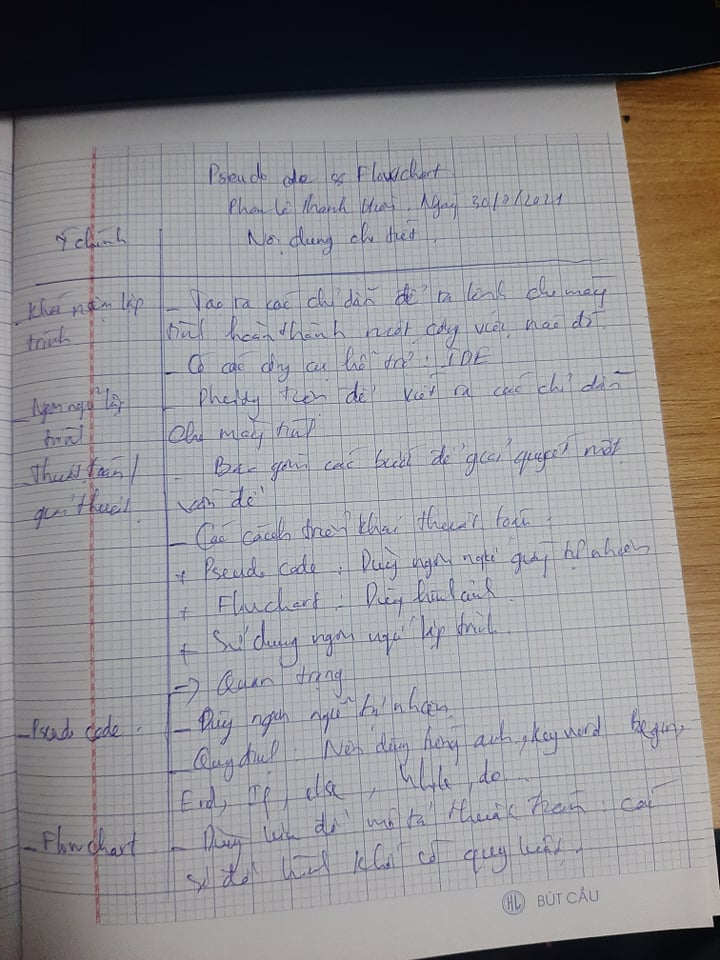 Pseudo code & Flowchart
Phan Lê Thanh, Ngày 30/ /2021
Ý chính
Nội dung chi tiết
- Khái niệm lập trình
- Tạo ra các chỉ dẫn để ra lệnh cho máy
tính hoàn thành một công việc nào đó
- Có các công cụ hỗ trợ: IDE
- Ngôn ngữ lập trình
- để viết ra các chỉ dẫn
cho máy tính
- Thuật toán/
giải thuật
- Bao gồm các bước để giải quyết một
vấn đề
- Các cách triển khai thuật toán:
+ Pseudo code: Dùng ngôn ngữ tự nhiên
+ Flowchart: Dùng hình ảnh
+ Sử dụng ngôn ngữ lập trình
=> Quan trọng
- Pseudo code
- Dùng ngôn ngữ tự nhiên
- Quy định: Nên dùng tiếng anh, keyword Begin,
End, If, else, While, do...
- Flowchart
- Dùng để mô tả thuật toán: các
sơ đồ hình khối có quy luật.
HL BÚT CẦU